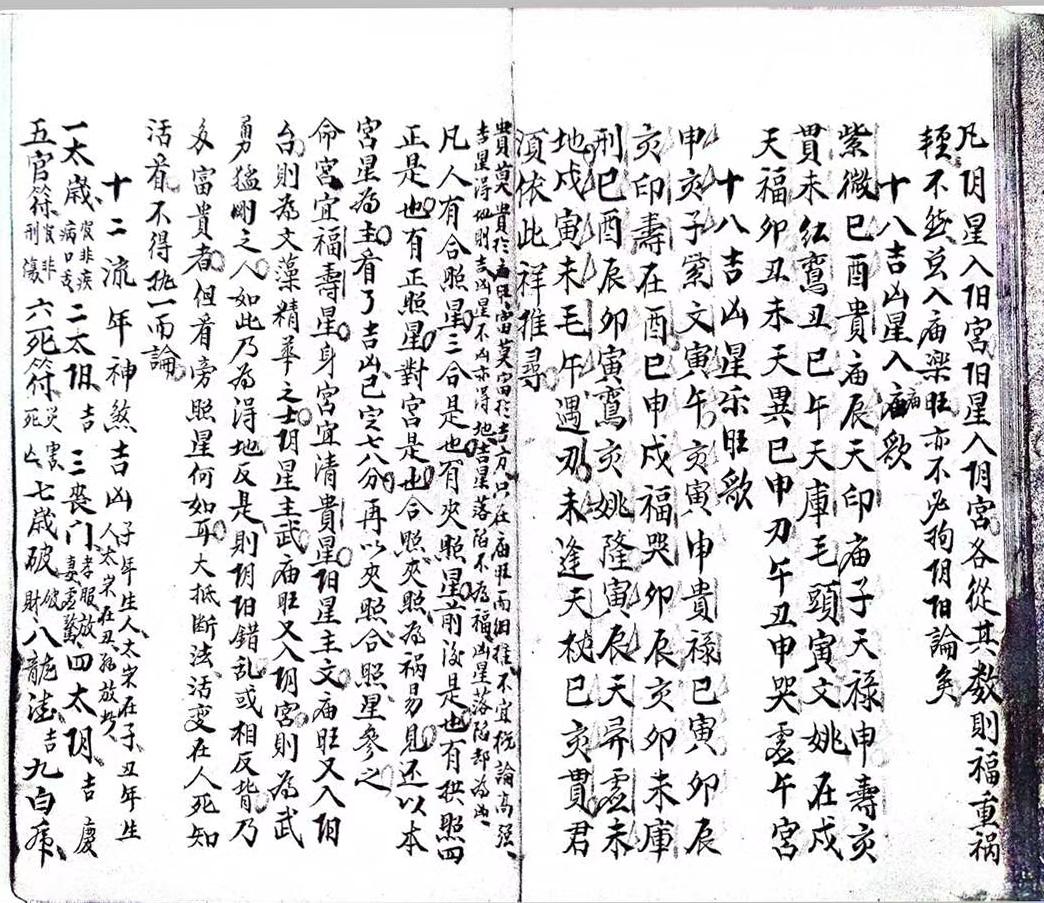 凡阴星入阳宫阳星入阴宫各從其数則福重祸
輕不然豈入庙樂旺亦不必拘阴阳論矣
十八吉凶星入庙歌
紫微巳酉貴庙辰天印庙子天禄申壽亥
貫未红鸾丑巳午天庫毛頭寅文姚在戍
天福卯丑未天異巳申刃午丑申哭虚午宮
十八吉凶星乐旺歌
申亥子紫文寅午亥寅申貴禄巳寅卯辰
亥印壽在酉巳申戍福哭卯辰亥卯未庫
刑巳酉辰卯寅鸾亥姚隆寅辰天异虚未
地戍寅未毛午遇刃未逢天杖巳亥貫君
須依此祥推尋
貴莫貴於庙旺富莫富於吉方只在庙旺而細推不宜概論高强
吉星得地則吉凶星不凶亦得地吉星落陷不為福凶星落陷却為凶
凡人有合照星三合是也有夾照星前後是也有拱照四
正是也有正照星對宮是也合照夾照為祸易見还以本
宮星為主看了吉凶已定七八分再以夾照合照星参之
命宮宜福壽星身宮宜清貴星阳星主文庙旺又入阳
台則為文藻精華之士阴星主武庙旺又入阴宮則為武
勇猛剛之人如此乃為得地反是則阴阳错乱或相反背乃
多富貴者但看旁照星何如耳大抵断法活变在人死知
活看不得执一而論
十二流年神煞吉凶子年生人太岁在子丑年生
人太岁在丑餘放此
一太歲灾非疾病口舌二太阳吉三丧门孝服妻虚驚放四太阴吉慶
五官符官非刑傷六死符灾害死亡七歲破破財八龍德吉九白虎